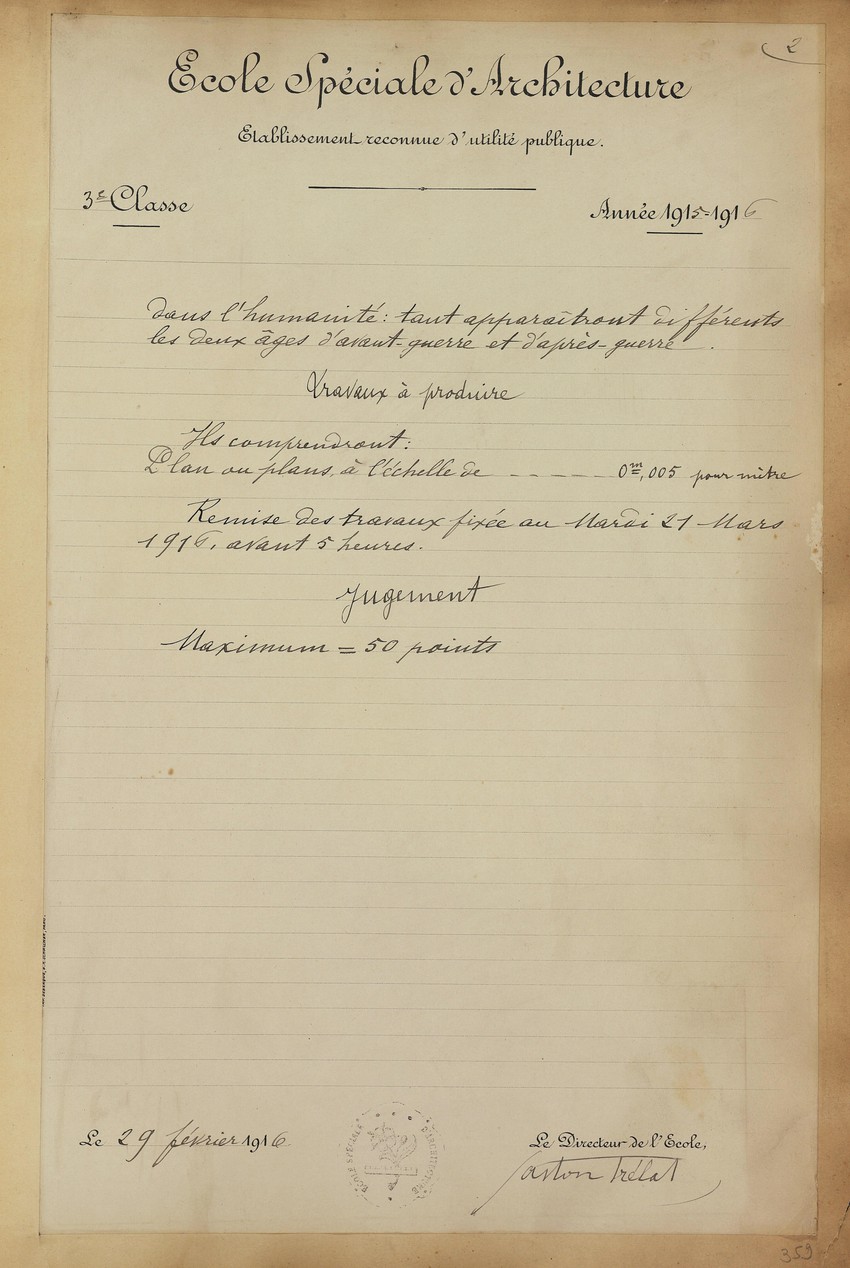 2
Ecole Spéciale d'Architecture
Etablissement reconnue d'utilité publique.
3e Classe
Année 1915-1916
dans l'humanité: tant apparaîtront différents
les deux âges d'avant-guerre et d'après-guerre.
Travaux à produire
Ils comprendront:
Plan ou plans, à l'échelle de - - - - - 0m,005 pour mètre
Remise des travaux fixée au Mardi 21 Mars
1916, avant 5 heures.
Jugement
Maximum = 50 points
Le 29 février 1916
ECOLE SPÉCIALE D'ARCHITECTURE
Le Directeur de l'Ecole,
Gaston Trélat
359